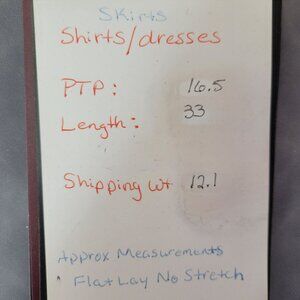 Skirts
Shirts/dresses
PTP: 16.5
Length: 33
Shipping wt 12.1
Approx Measurements
Flat Lay No Stretch